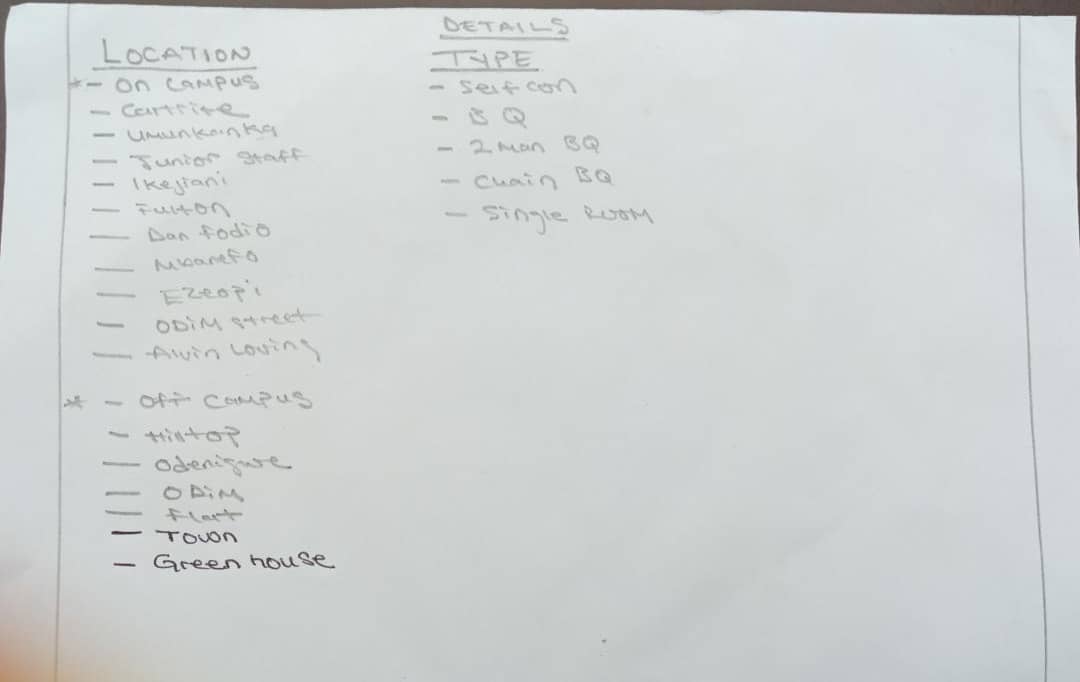 LOCATION
*- On CAMPUS
- Cartrite
- Umunkanka
- Junior Staff
- Ikejiani
- Fulton
- Dan fodio
- Mbanefo
- Ezeopi
- ODiM street
- Alvin Loving
* - Off CAMPUS
- Hilltop
- Odenigwe
- ODiM
- Flat
- Town
- Green house
DETAILS
TYPE
- Self con
- B Q
- 2 Man BQ
- Chain BQ
- Single ROOM